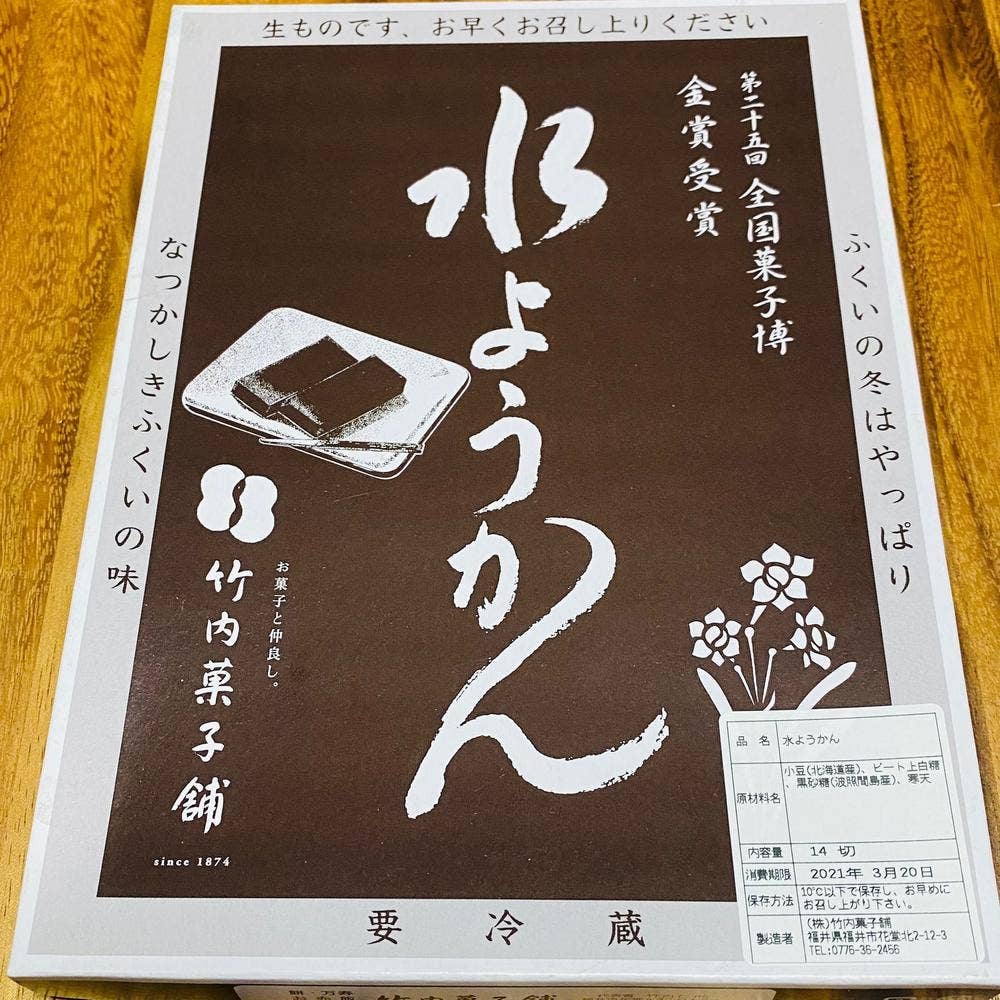 生ものです、お早くお召し上りください
第二十五回 全国菓子博
金賞受賞
水ようかん
ふくいの冬はやっぱり
なつかしきふくいの味
お菓子と仲良し。
竹内菓子舗
since 1874
要冷蔵
品 名 水ようかん
原材料名 小豆(北海道産)、ビート上白糖
、黒砂糖(波照間島産)、寒天
内容量 14 切
消費期限 2021年 3月20日
保存方法 10℃以下で保存し、お早めに
お召し上がり下さい。
製造者 (株)竹内菓子舗
福井県福井市花堂北2-12-3
TEL:0776-36-2456
竹内菓子舗